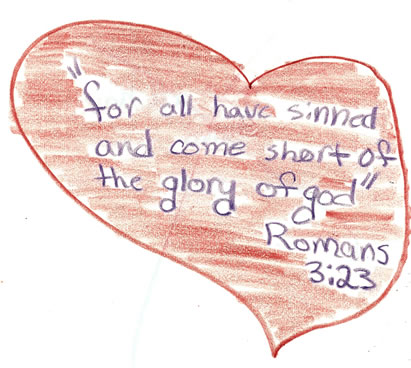 "for all have sinned
and come short of
the glory of god"
Romans
3:23